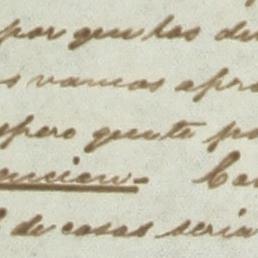 por que los de
s vamos apro
espero que te pa
uncion. Co
de casas seria